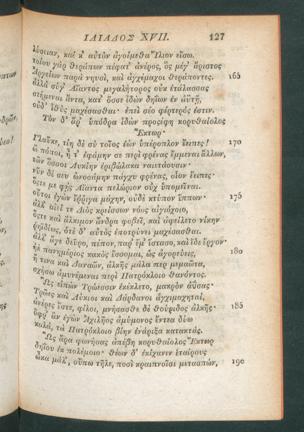 ΙΛΙΑΔΟΣ XVII. 127
λύσειαν, καί κ' αὐτὸν ἀγοίμεθα Ἴλιον εἴσω.
τοίου γὰρ θεράπων πέφατ' ἀνέρος, ὃς μέγ' ἄριστος
Ἀργείων παρὰ νηυσὶ, καὶ ἀγχέμαχοι θεράποντες. 165
ἀλλὰ σύγ' Αἴαντος μεγαλήτορος οὐκ ἐτάλασσας
στήμεναι ἄντα, κατ' ὄσσε ἰδὼν δηΐων ἐν ἀϋτῇ,
οὐδ' ἰθὺς μαχέσασθαι· ἐπεὶ σέο φέρτερός ἐστιν.
Τὸν δ' ἄρ' ὑπόδρα ἰδὼν προσέφη κορυθαίολος
Ἕκτωρ·
Γλαῦκε, τίη δὲ σὺ τοῖος ἐὼν ὑπέροπλον ἔειπες! 170
ὢ πόποι, ἦ τ' ἐφάμην σε περὶ φρένας ἔμμεναι ἄλλων,
τῶν ὅσσοι Λυκίην ἐριβώλακα ναιετάουσιν·
νῦν δέ σευ ὠνοσάμην πάγχυ φρένας, οἷον ἔειπες·
ὅστε με φῂς Αἴαντα πελώριον οὐχ ὑπομεῖναι.
οὔτοι ἐγὼν ἔῤῥιγα μάχην, οὐδὲ κτύπον ἵππων· 175
ἀλλ' αἰεί τε Διὸς κρείσσων νόος αἰγιόχοιο,
ὅστε καὶ ἄλκιμον ἄνδρα φοβεῖ, καὶ ἀφείλετο νίκην
ῥηϊδίως, ὁτὲ δ' αὐτὸς ἐποτρύνει μαχέσασθαι.
ἀλλ' ἄγε δεῦρο, πέπον, παρ' ἔμ' ἵστασο, καὶ ἴδε ἔργον·
ἠὲ πανημέριος κακὸς ἔσσομαι, ὡς ἀγορεύεις, 180
ἤ τινα καὶ Δαναῶν, ἀλκῆς μάλα περ μεμαῶτα,
σχήσω ἀμυνέμεναι περὶ Πατρόκλοιο θανόντος.
Ὣς εἰπὼν Τρώεσσιν ἐκέκλετο, μακρὸν ἀΰσας·
Τρῶες καὶ Λύκιοι καὶ Δάρδανοι ἀγχιμαχηταὶ,
ἀνέρες ἔστε, φίλοι, μνήσασθε δὲ θούριδος ἀλκῆς· 185
ὄφρ' ἂν ἐγὼν Ἀχιλῆος ἀμύμονος ἔντεα δύω
καλὰ, τὰ Πατρόκλοιο βίην ἐνάριξα κατακτάς.
Ὣς ἄρα φωνήσας ἀπέβη κορυθαίολος Ἕκτωρ
δηΐου ἐκ πολέμοιο· θέων δ' ἐκίχανεν ἑταίρους
ὦκα μάλ', οὔπω τῆλε, ποσὶ κραιπνοῖσι μετασπὼν, 190